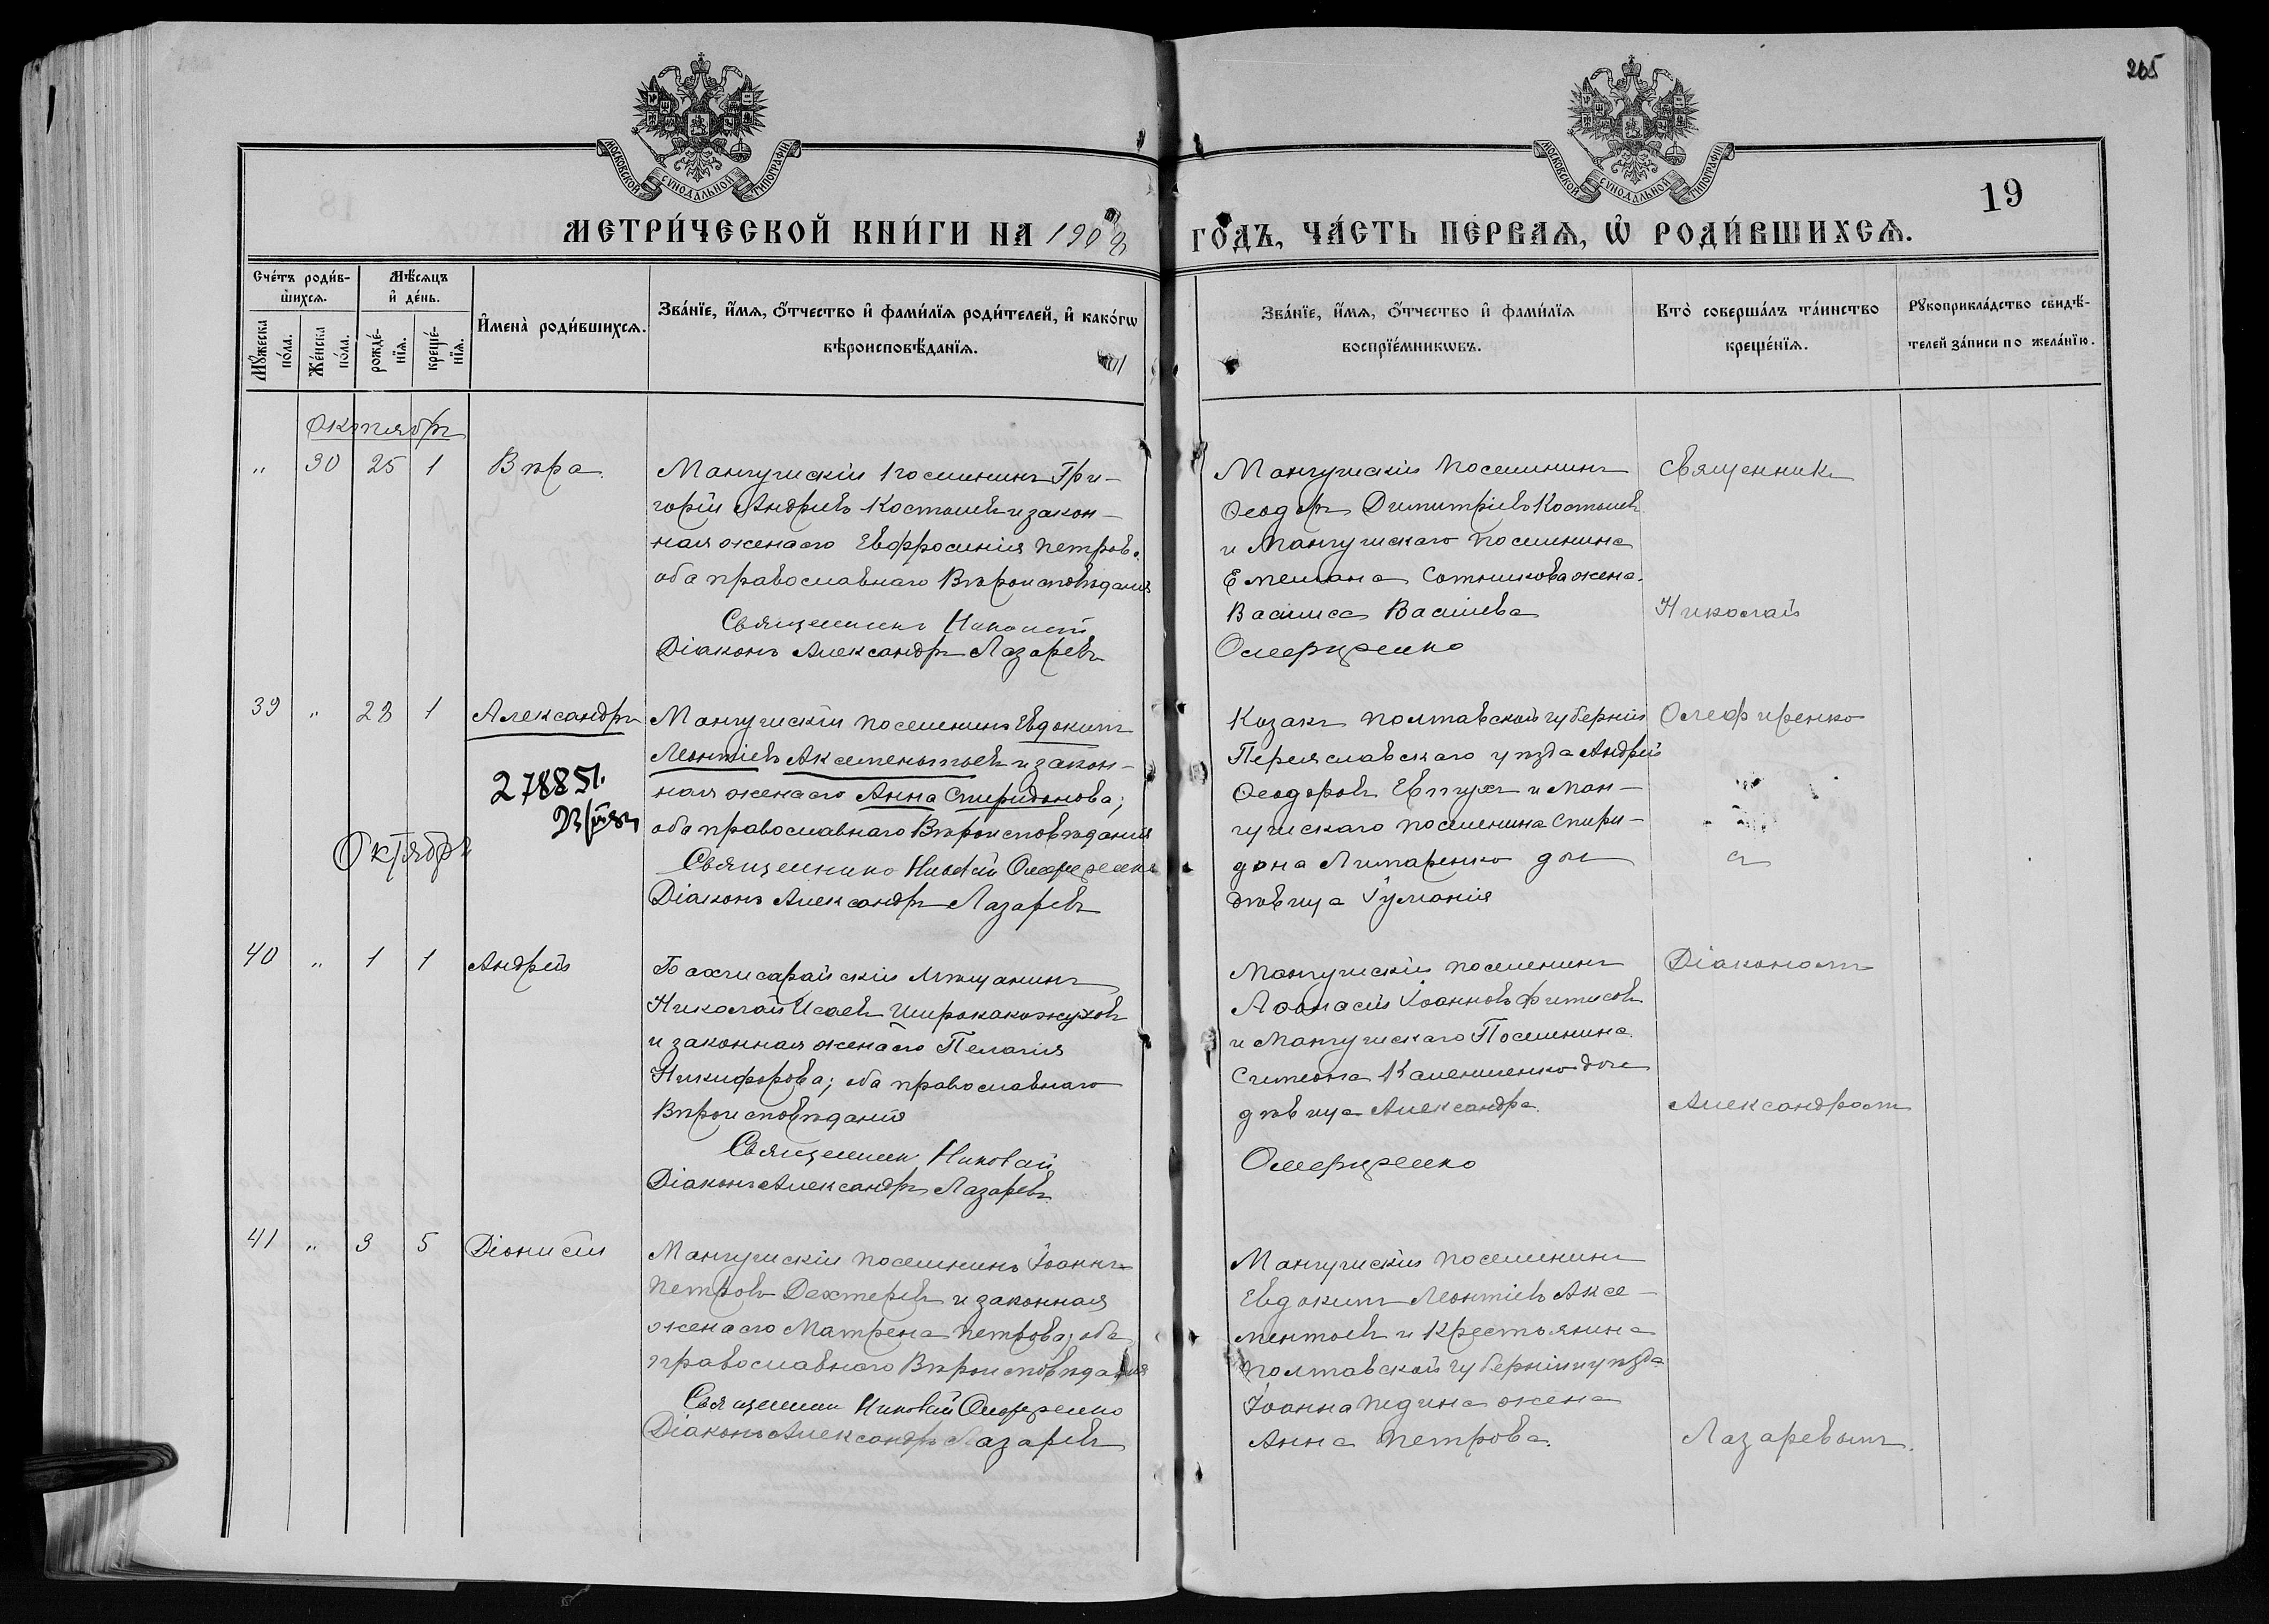 265
МОСКОВСКОЙ СУНОДАЛЬНОЙ ТИПОГРАФІИ
МОСКОВСКОЙ СУНОДАЛЬНОЙ ТИПОГРАФІИ
19
МЕТРИ́ЧЕСКОЙ КНИ́ГИ НА 1908
ГО́ДЪ, ЧА́СТЬ ПЕ́РВАѦ, Ѡ҆ РОДИ́ВШИХСѦ.
Сче́тъ роди́в-
шихсѧ.
Мꙋ́жеска по́ла.
Же́нска по́ла.
Мѣ́сѧцъ
и҆ де́нь.
рожде́-
нїѧ.
креще́-
нїѧ.
И҆мена̀ роди́вшихсѧ.
Зва́нїе, и҆́мѧ, ѻ҆́тчество и҆ фами́лїѧ роди́телей, и҆ како́гѡ
вѣроисповѣ́данїѧ.
Зва́нїе, и҆́мѧ, ѻ҆́тчество и҆ фами́лїѧ
воспрїе́мникѡвъ.
Кто̀ соверша́лъ та́инство
креще́нїѧ.
Рꙋкоприкла́дство свидѣ́-
телей за́писи по жела́нїю.
Октябрь
" 30 25 1 Вѣра
Мангушскій поселянинъ Гри-
горій Андреевъ Костылевъ и закон-
ная жена его Евфросинія Петрова
оба православнаго Вѣроисповѣданія
Священникъ Николай
Діаконъ Александръ Лазаревъ
Мангушскій поселянинъ
Ѳеодоръ Димитріевъ Костылевъ
и Мангушскаго поселянина
Емельяна Сотникова жена
Василиса Васильева
Олефиренко
Священникъ
Николай
39 " 28 1 Александръ
278851.
Мангушскій поселянинъ Евдокимъ
Леонтіевъ Аксементьевъ и закон-
ная жена его Анна Спиридонова;
оба православнаго Вѣроисповѣданія
Священникъ Николай Олефиренко
Діаконъ Александръ Лазаревъ
Козакъ Полтавской губерніи
Переяславскаго уѣзда Андрей
Ѳеодоровъ Евтухъ и Ман-
гушскаго поселянина Спири-
дона Литаренко дочь
дѣвица Іуліанія
Олефиренко
съ
Октябрь
40 " 1 1 Андрей
Бахчисарайскій мѣщанинъ
Николай Исаевъ Широкакожуховъ
и законная жена его Пелагія
Никифорова; оба православнаго
Вѣроисповѣданія
Священникъ Николай
Діаконъ Александръ Лазаревъ
Мангушскій поселянинъ
Аѳанасій Іоанновъ Фитисовъ
и Мангушскаго Поселянина
Симеона дочь
дѣвица Александра.
Олефиренко
Діакономъ
Александромъ
41 " 3 5 Діонисій
Мангушскій поселянинъ Іоаннъ
Петровъ Дехтеревъ и законная
жена его Матрена Петрова; оба
православнаго Вѣроисповѣданія
Священникъ Николай Олефиренко
Діаконъ Александръ Лазаревъ
Мангушскій поселянинъ
Евдокимъ Леонтіевъ Аксе-
ментьевъ и Крестьянина
Полтавской губерніи и уѣзда
Іоанна жена
Анна Петрова.
Лазаревымъ.